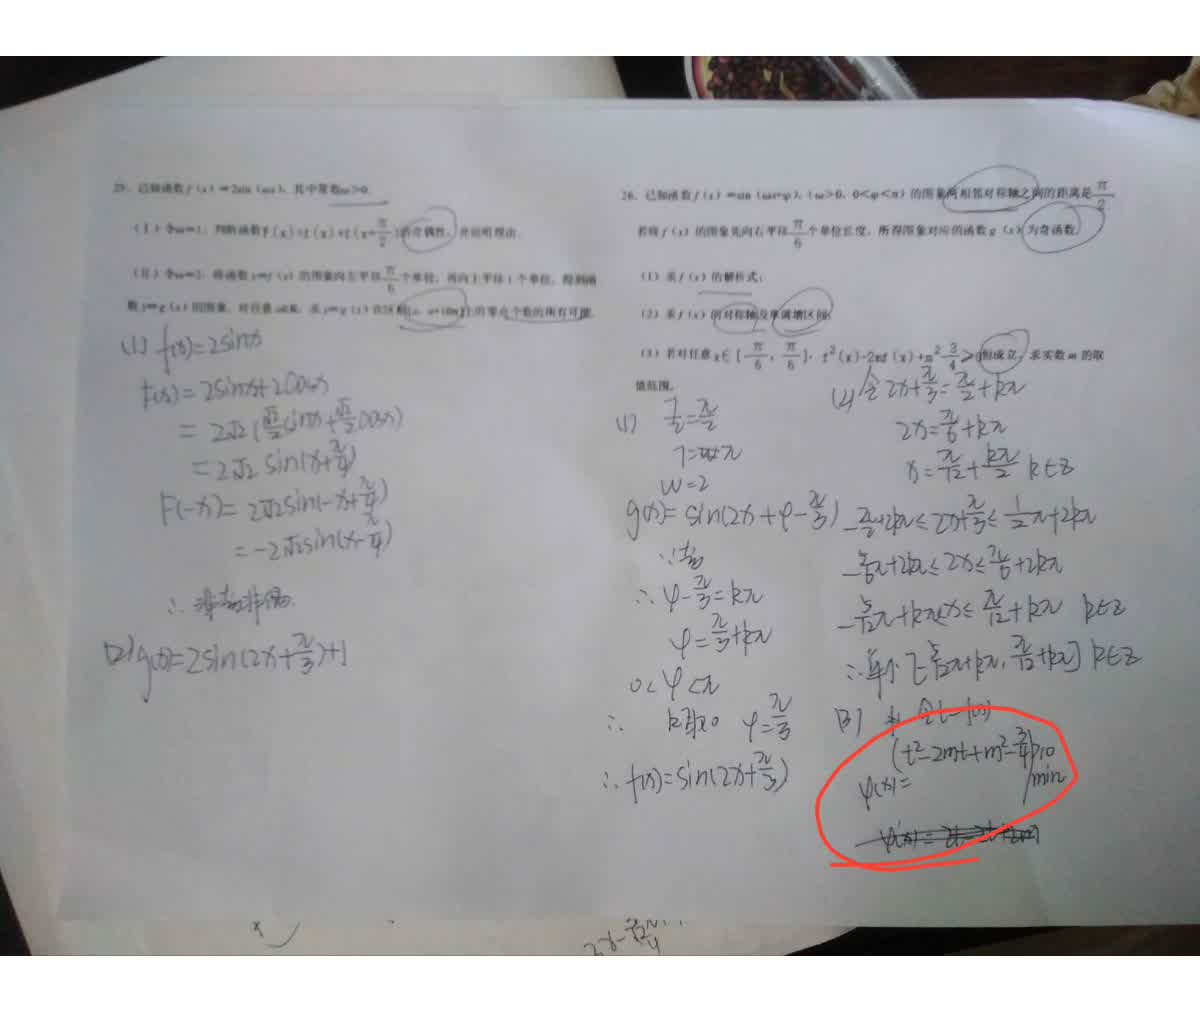 25．已知函数f（x）=2sin（ωx），其中常数ω>0．
（Ⅰ）令ω=1，判断函数F（x）=f（x）+f（x+π/2）的奇偶性，并说明理由．
（Ⅱ）令ω=2，将函数y=f（x）的图象向左平移π/6个单位，再向上平移1个单位，得到函
数y=g（x）的图象，对任意a∈R，求y=g（x）在区间[a，a+10π]上的零点个数的所有可能
(1) f(x)=2sinx
F(x)=2sinx+2cosx
=2√2(√2/2 sinx+√2/2 cosx)
=2√2 sin(x+π/4)
F(-x)=2√2sin(-x+π/4)
=-2√2sin(x-π/4)
∴ 非奇非偶.
(2) g(x)=2sin(2x+π/3)+1
26．已知函数f（x）=sin（ωx+φ），（ω>0，0<φ<π）的图象两相邻对称轴之间的距离是π/2，
若将f（x）的图象先向右平移π/6个单位长度，所得图象对应的函数g（x）为奇函数
（1）求f（x）的解析式；
（2）求f（x）的对称轴及单调增区间；
（3）若对任意x∈[-π/6，π/6]，f²（x）-2mf（x）+m²-3/4≥0恒成立，求实数m的取
值范围．
(1) T/2=π/2
T=π
W=2
g(x)=sin(2x+φ-π/3)
∵奇
∴φ-π/3=kπ
φ=π/3+kπ
0<φ<π
∴ k取0 φ=π/3
∴ f(x)=sin(2x+π/3)
(2) 令2x+π/3=π/2+kπ
2x=π/6+kπ
x=π/12+kπ/2 k∈Z
-π/2+2kπ≤2x+π/3≤1/2π+2kπ
-5/6π+2kπ≤2x≤π/6+2kπ
-5/12π+kπ≤x≤π/12+kπ k∈Z
∴单个[-5/12π+kπ,π/12+kπ] k∈Z
(3) 令t=f(x)
(t²-2mt+m²-3/4)min≥0
φ(x)=